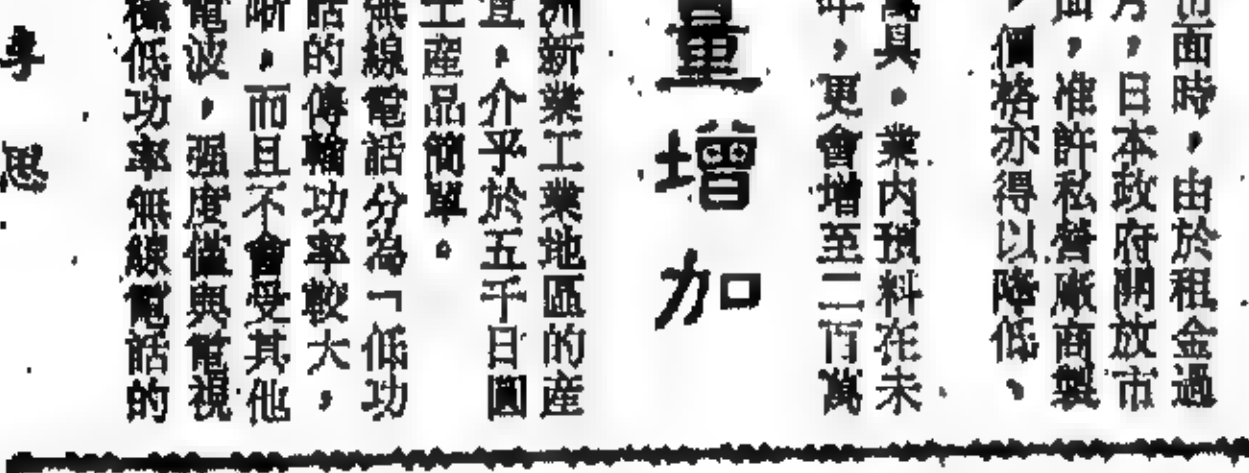 市面時，由於租金過
月，日本政府開放市
面，准許私營廠商製
，價格亦得以降低、
萬具。業內預料在未
年，更會增至二百萬
量增加
洲新業工業地區的產
宜，介乎於五千日圓
工產品簡單。
無線電話分為「低功
話的傳輸功率較大，
晰，而且不會受其他
電波，强度僅與電視
種低功率無線電話的
李思